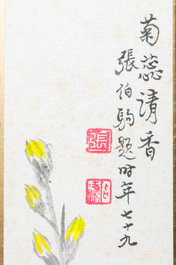 菊蕊清香
張伯駒題時年七十九
張